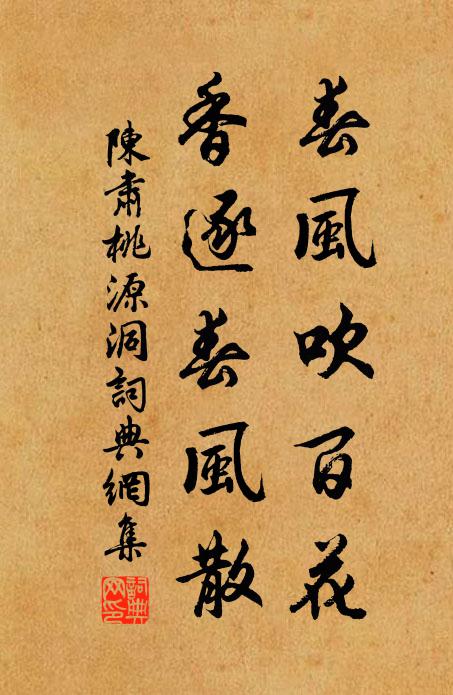 春風吹百花
香逐春風散
陳肅桃源洞詞典網集
詞典網印